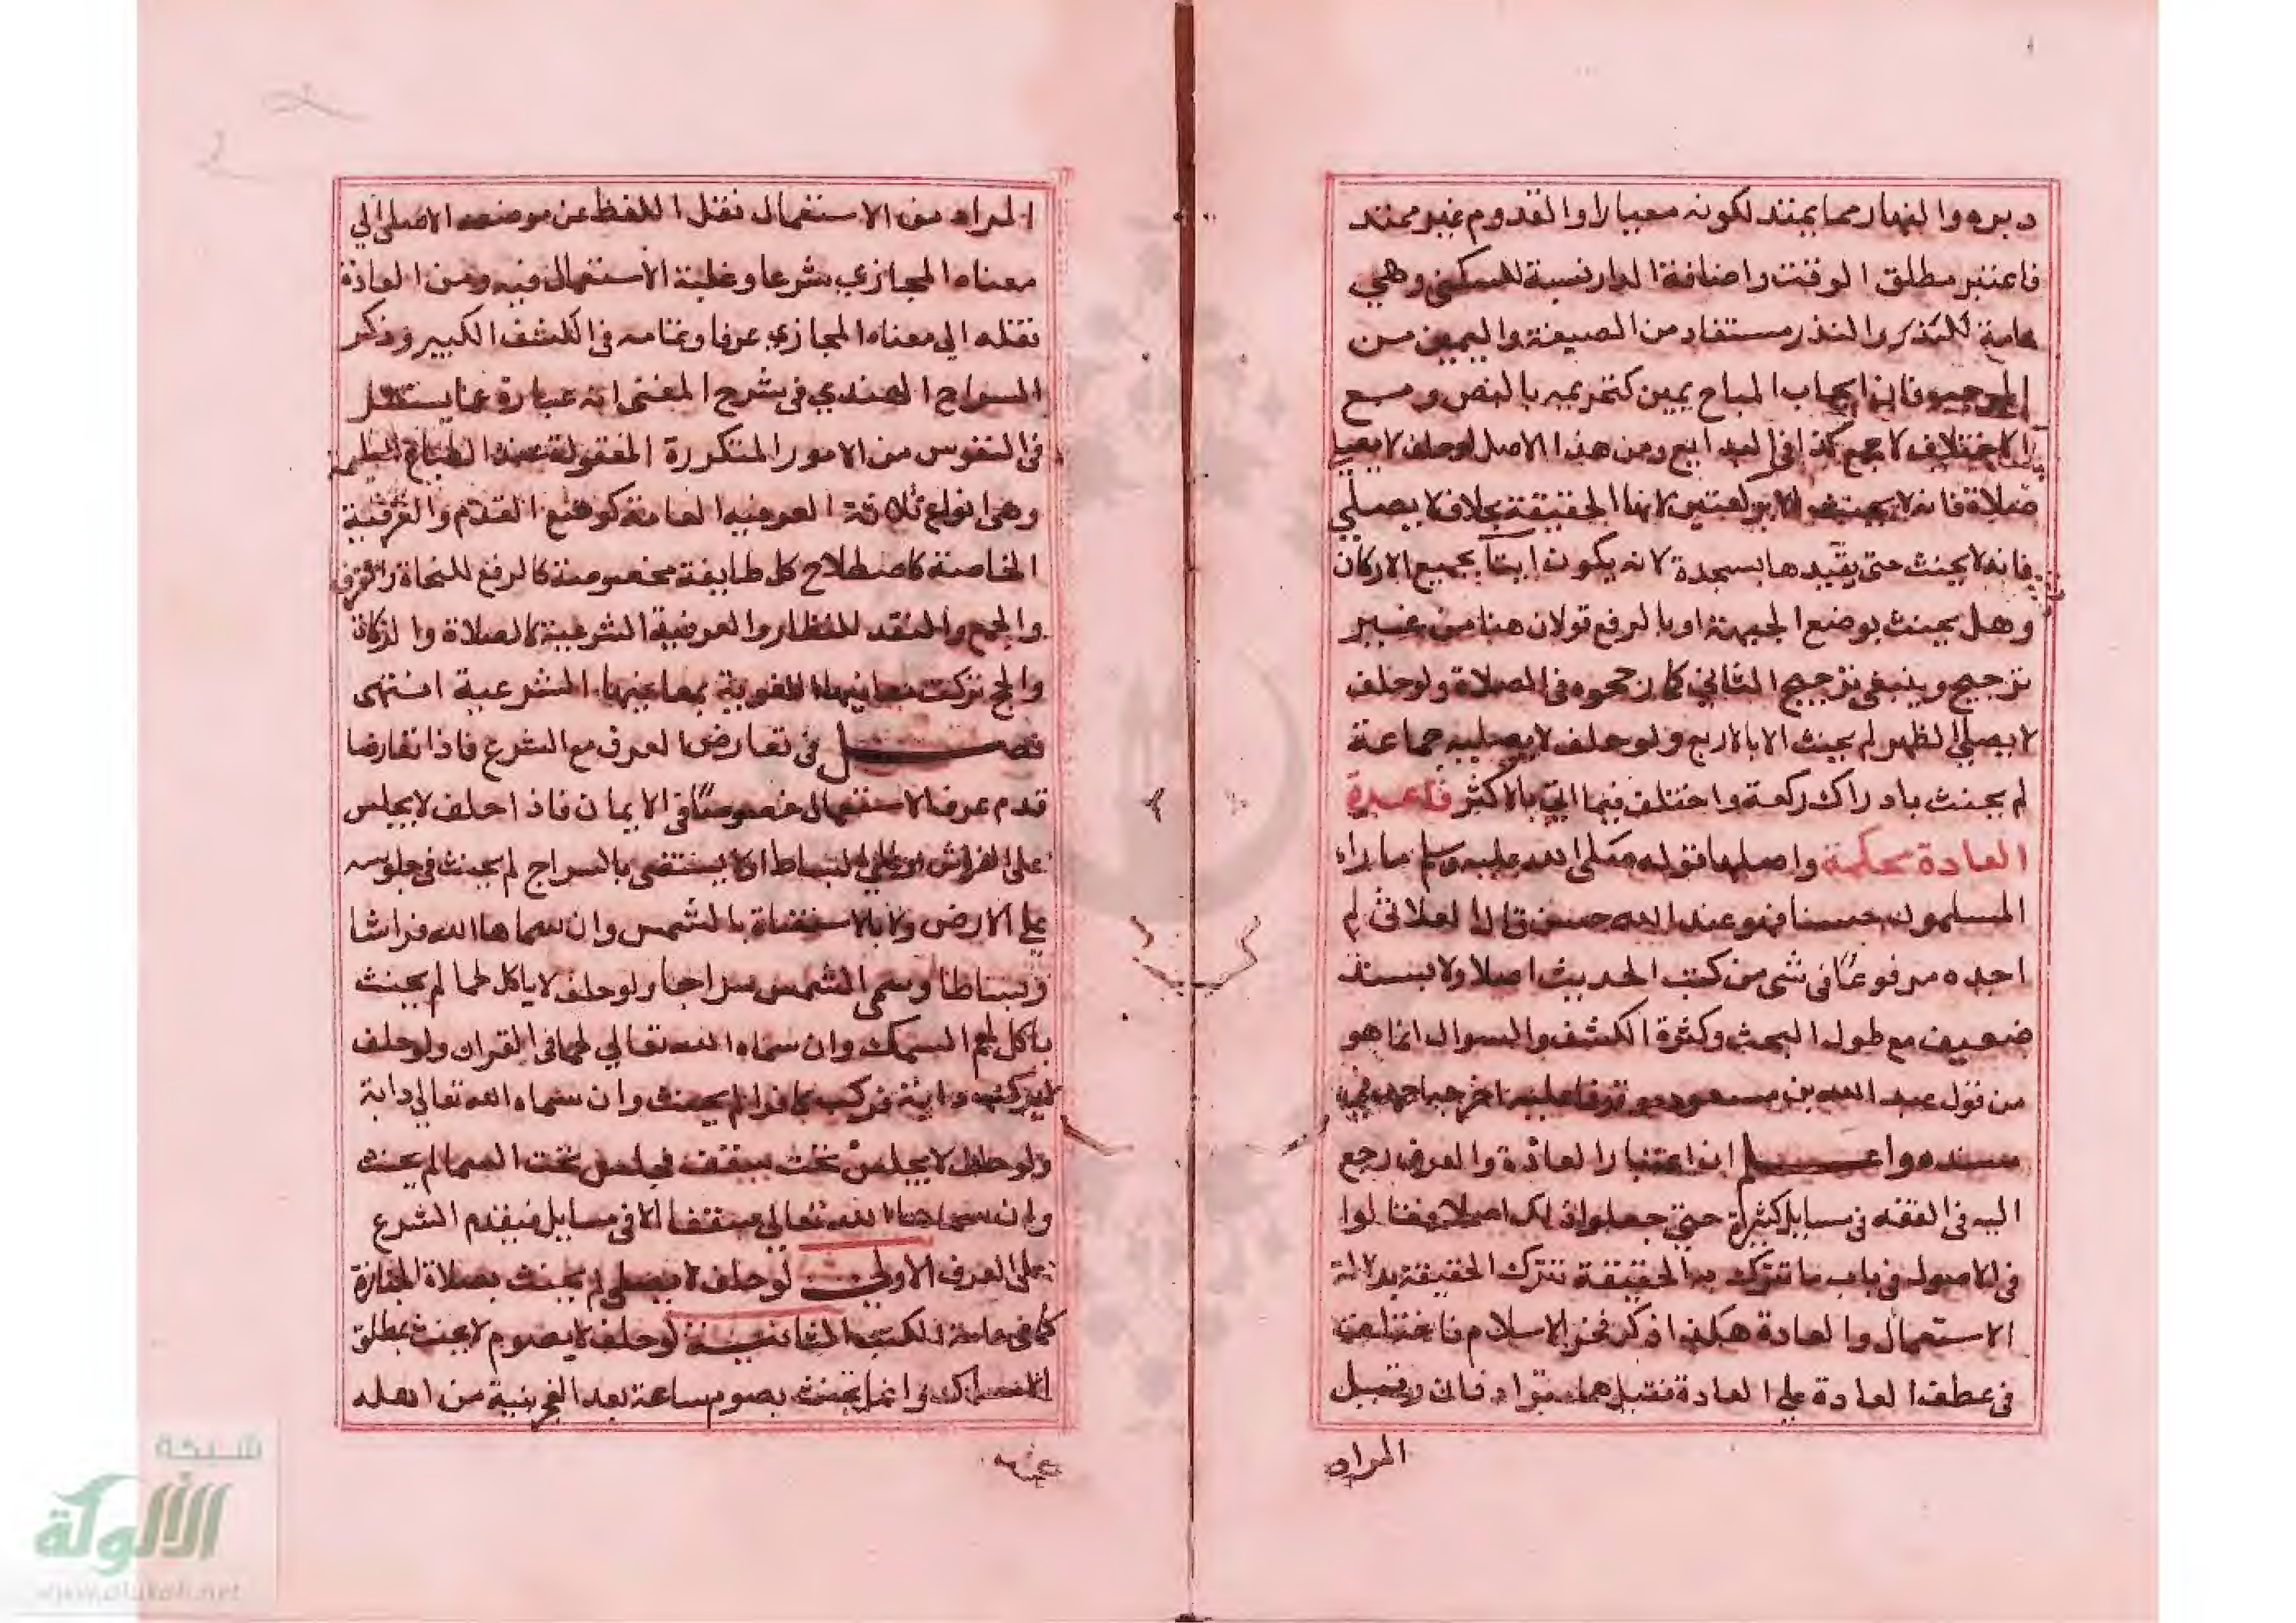 دبره والنهار مما يمتد لكونه معيارا والقدوم غير ممتد
فاعتبر مطلق الوقت واضافة الدار نسبة للسكنى وهي
عامة للنذر والنذر مستفاد من الصيغة واليمين من
الموجب فان ايجاب المباح يمين كتحريمه بالنص ومع
الاختلاف لا جمع كذا في البدايع ومن هذا الاصل لو حلف لا يصلي
صلاة فانه لا يحنث الا بركعتين لانها الحقيقة بخلاف لا يصلي
فانه لا يحنث حتى يقيدها بسجدة لانه يكون اتيا بجميع الاركان
وهل يحنث بوضع الجبهة او بالرفع قولان هنا من غير
ترجيح وينبغي ترجيح الثاني كما رجحوه في الصلاة ولو حلف
لا يصلي الظهر لم يحنث الا بالاربع ولو حلف لا يصليه جماعة
لم يحنث بادراك ركعة واختلف فيما اتى بالاكثر قاعدة
العادة محكمة واصلها قوله صلى الله عليه وسلم ما راه
المسلمون حسنا فهو عند الله حسن قال العلائي لم
اجده مرفوعا في شي من كتب الحديث اصلا ولا بسند
ضعيف مع طول البحث وكثرة الكشف والسوال انما هو
من قول عبد الله بن مسعود موقوفا عليه اخرجه احمد في
مسنده واعلم ان اعتبار العادة والعرف رجع
اليه في الفقه في مسايل كثيرة حتى جعلوا ذلك اصلا فقالوا
في الاصول في باب ما تترك به الحقيقة تترك الحقيقة بدلالة
الاستعمال والعادة هكذا ذكر فخر الاسلام فاختلف
في عطف العادة على العادة فقيل هما مترادفان وقيل
المراد
المراد من الاستعمال نقل اللفظ عن موضعه الاصلي الي
معناه المجازي شرعا وغلبة الاستعمال فيه ومن العادة
نقله الي معناه المجازي عرفا وتمامه في الكشف الكبير وذكر
السراج الهندي في شرح المغني انه عبارة عما يستقر
في النفوس من الامور المتكررة المقبولة عند الطباع السليمة
وهي انواع ثلاثة العرفية العامة كوضع القدم والعرفية
الخاصة كاصطلاح كل طايفة مخصوصة كالرفع للنحاة والفرق
والجمع والنقد للنظار والعرفية الشرعية كالصلاة والزكاة
والحج تركت معانيها اللغوية بمعانيها الشرعية انتهى
فصل في تعارض العرف مع الشرع فاذا تعارضا
قدم عرف الاستعمال خصوصا في الايمان فاذا حلف لا يجلس
على الفراش او على البساط او لا يستضي بالسراج لم يحنث في جلوسه
على الارض ولا بالاستضاة بالشمس وان سماها الله فراشا
وبساطا وسمى الشمس سراجا ولو حلف لا ياكل لحما لم يحنث
باكل لحم السمك وان سماه الله تعالي لحما في القران ولو حلف
لا يركب دابة فركب كافرا لم يحنث وان سماه الله تعالي دابة
ولو حلف لا يجلس تحت سقف فجلس تحت السما لم يحنث
وان سماها الله تعالى سقفا الا في مسايل فيقدم الشرع
على العرف الاولى لو حلف لا يصلي لم يحنث بصلاة الجنازة
كما في عامة الكتب الثانية لو حلف لا يصوم لا يحنث بمطلق
الامساك وانما يحنث بصوم ساعة بعد الفجر بنية من اهله
شبكة
الألوكة
www.alukah.net